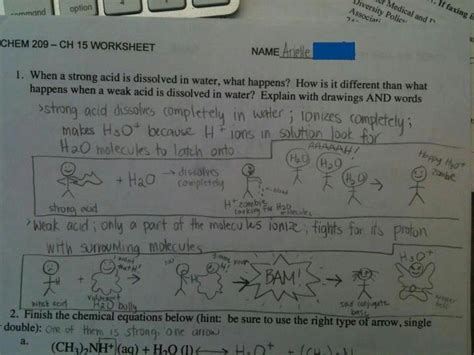 command
option
Medical and
Diversity Policy
Associati
If faxing
CHEM 209 – CH 15 WORKSHEET
NAME Arielle
1. When a strong acid is dissolved in water, what happens? How is it different than what
happens when a weak acid is dissolved in water? Explain with drawings AND words
>strong acid dissolves completely in water; ionizes completely;
makes H3O+ because H+ ions in solution look for
H2O molecules to latch onto.
AAAAAH!
+ H2O → dissolves
completely
H2O H2O H2O
Happy H3O+
zombie
strong acid
H+ zombie
looking for H2O
molecules
>weak acid; only a part of the molecules ionize; fights for its proton
with surrounding molecules
want
that H!
no!
H
BAM!
H3O+
weak acid
+
H2O bully
sad conjugate
base
2. Finish the chemical equations below (hint: be sure to use the right type of arrow, single
double): One of them is strong, one arrow
a. (CH3)2NH+ (aq) + H2O (l) H3O+ +